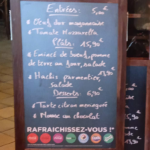 Entrées: 5,00€
• Oeuf dur mayonnaise
• Tomate Mozzarella
Plats: 15,90€
• Emincé de boeuf, pommes
de terre au four, salade
• Hachis parmentier,
salade
Desserts: 6,50€
• Tarte citron meringuée
• Mousse au chocolat
RAFRAICHISSEZ-VOUS !*